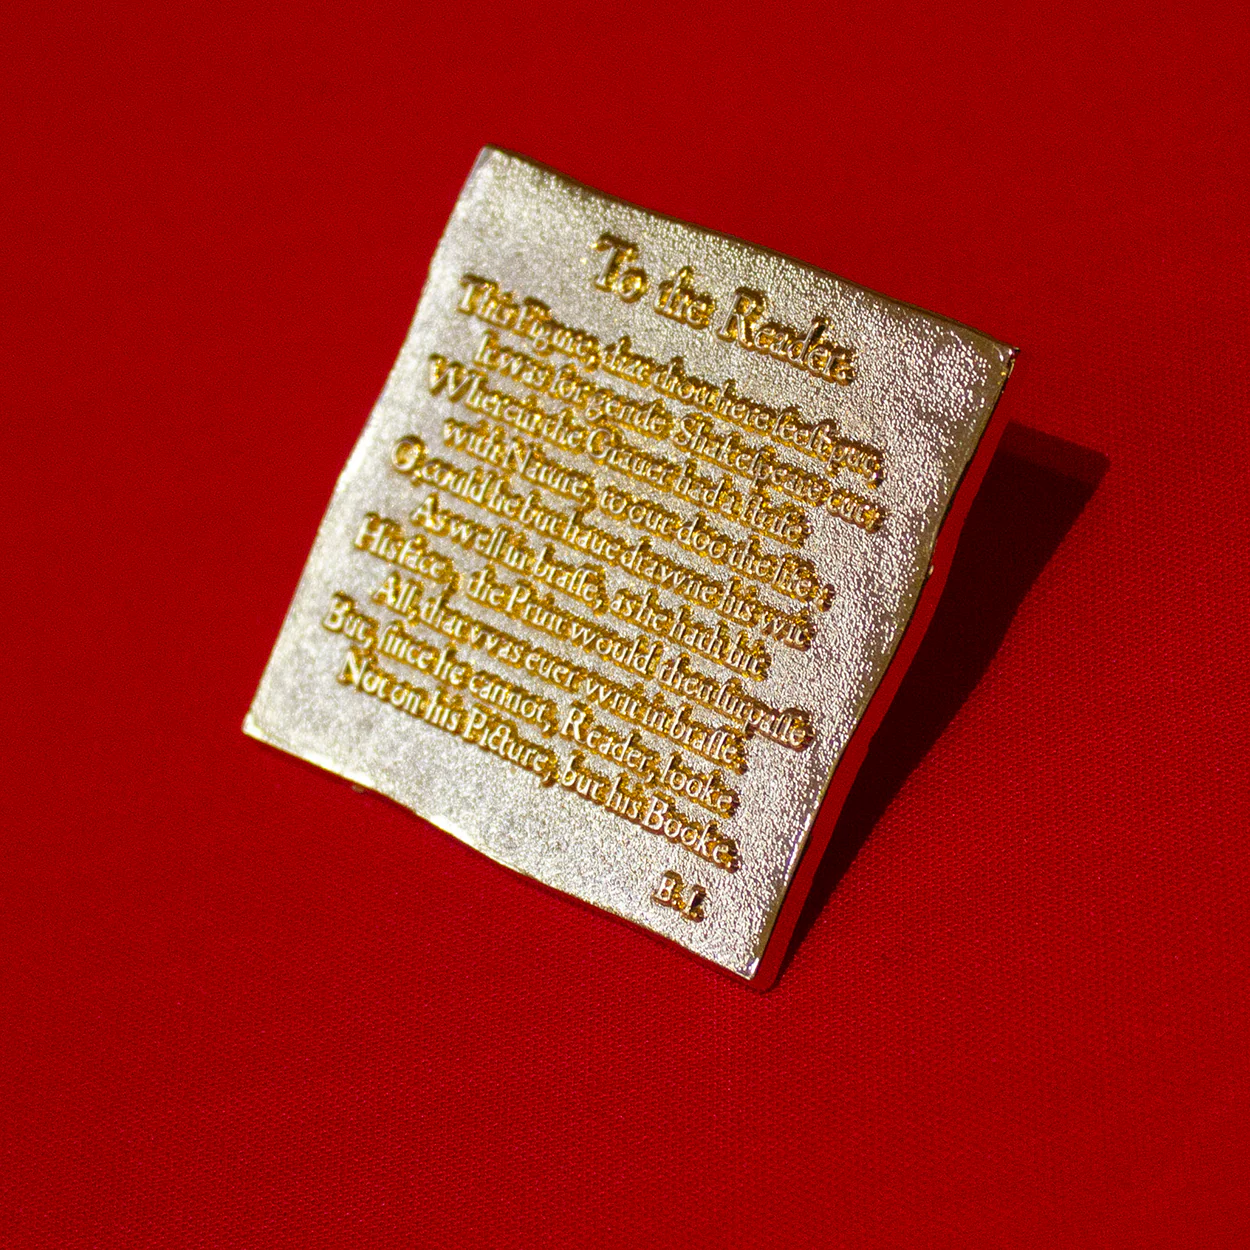 To the Reader.
This Figure, that thou here ſeeſt put,
It was for gentle Shakeſpeare cut;
Wherein the Grauer had a ſtrife
with Nature, to out-doo the life:
O, could he but haue dravvne his wit
As well in braſſe, as he hath hit
His face, the Print would then ſurpaſſe
All, that vvas euer vvrit in braſſe.
But, ſince he cannot, Reader, looke
Not on his Picture, but his Booke.
B. I.